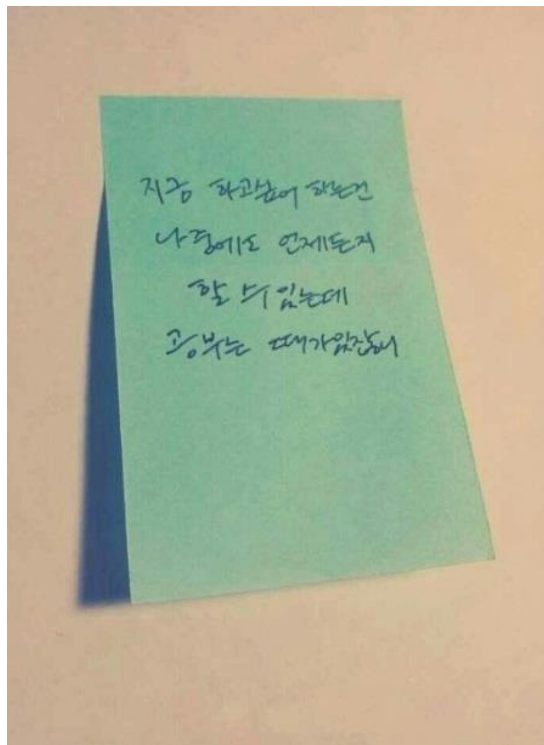 지금 하고싶어 하는건
나중에도 언제든지
할 수 있는데
공부는 때가있잖아